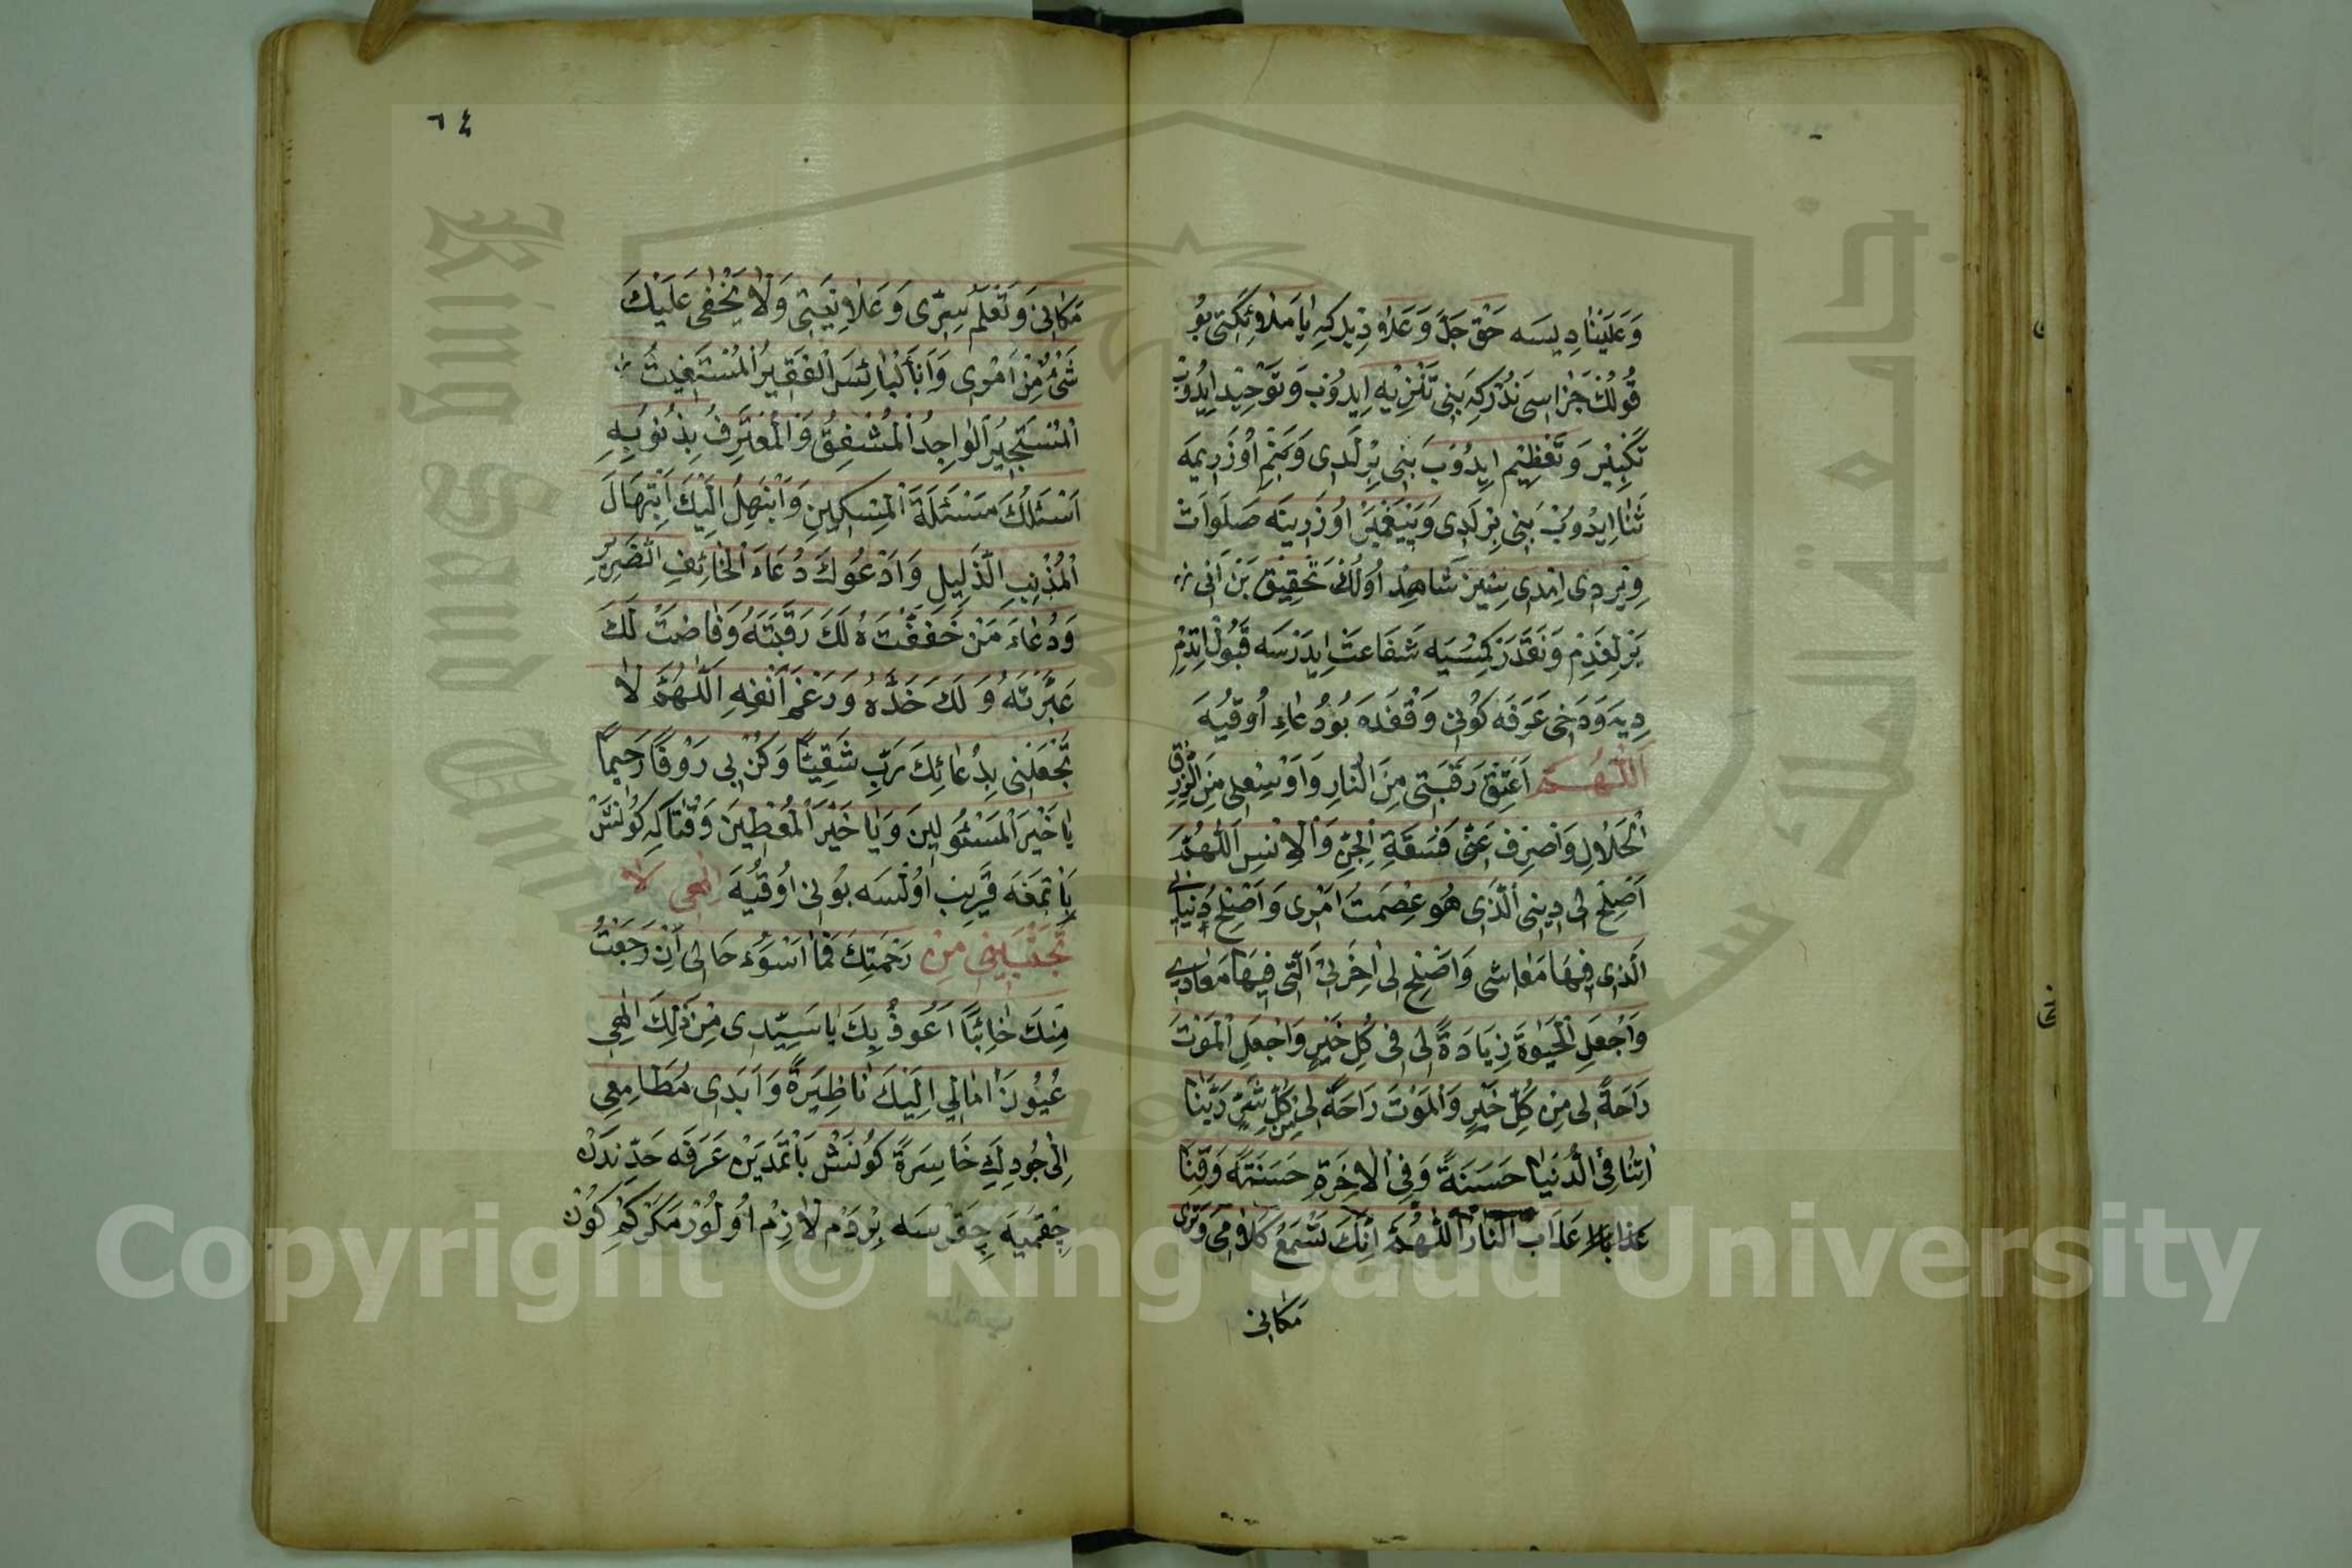 وَعَلَيْنَا دِيسَه حَقْ جَلَّ وَعَلَاءِ دِيدِكِه يَا مَلَائِكَتِي بُو
قُولُكْ جَزَاسِى نَدُرْكِه بَنِى تَنْزِيه اِيدُوبْ وَتَوْحِيدْ اِيدُوبْ
تَكْبِيرْ وَتَعْظِيمْ اِيدُوبَ بَنِى بِرْلَدِى وَبَنِمْ اُوزَرِيمَه
ثَنَا اِيدُوبْ بَنِى بِرْلَدِى وَپَيْغَمْبَرْ اُوزَرِينَه صَلَوَاتْ
وِيرْدِى اِمْدِى سِيزْ شَاهِدْ اُولُكْ تَحْقِيقْ بَنْ اَنِى
يَرْلِغَدِمْ وَنَقَدَرْ كِمْسَيَه شَفَاعَتْ اِيدَرْسَه قَبُولْ اِتْدِمْ
دِيَه وَدَخِى عَرَفَه كُونِى وَقْفَدَه بُو دُعَاءِ اُوقُيَه
اَللّٰهُمَّ اَعْتِقْ رَقَبَتِى مِنَ النَّارِ وَاَوْسِعْلِى مِنَ الرِّزْقِ
الْحَلَالِ وَاَصْرِفْ عَنِّى فَسَقَةِ الْجِنِّ وَالْاِنْسِ اَللّٰهُمَّ
اَصْلِحْ لِى دِينِى الَّذِى هُوَ عِصْمَتُ اَمْرِى وَاَصْلِحْ دُنْيَاىَ
الَّذِى فِيهَا مَعَاشِى وَاَصْلِحْ لِى اٰخِرَتِىْ الَّتِى فِيهَا مَعَادِى
وَاجْعَلِ الْحَيٰوةَ زِيَادَةً لِى فِى كُلِّ خَيْرٍ وَاجْعَلِ الْمَوْتَ
رَاحَةً لِى مِنْ كُلِّ خَيْرٍ وَالْمَوْتَ رَاحَةً لِى مِنْ كُلِّ شَرٍّ رَبَّنَا
اٰتِنَا فِى الدُّنْيَا حَسَنَةً وَفِى الْاٰخِرَةِ حَسَنَةً وَقِنَا
عَذَابَ النَّارْ اَللّٰهُمَّ اِنَّكَ تَسْمَعُ كَلَامِى وَتَرٰى
مَكَانِى
٦٤
مَكَانِى وَتَعْلَمُ سِرِّى وَعَلَانِيَتِى وَلَا يَخْفٰى عَلَيْكَ
شَىْءٌ مِنْ اَمْرِى وَاَنَا الْبَائِسُ الْفَقِيرُ الْمُسْتَغِيثُ
الْمُسْتَجِيرُ الْوَاجِدُ الْمُشْفِقُ وَالْمُعْتَرِفُ بِذُنُوبِهِ
اَسْئَلُكَ مَسْئَلَةَ الْمِسْكِينِ وَاَبْتَهِلُ اِلَيْكَ اِبْتِهَالَ
الْمُذْنِبِ الذَّلِيلِ وَاَدْعُوكَ دُعَاءَ الْخَائِفِ الضَّرِيرِ
وَدُعَاءَ مَنْ خَفَقَتْ هُ لَكَ رَقَبَتَهُ وَفَاضَتْ لَكَ
عَبْرَتَهُ وَ لَكَ خَدَّهُ وَرَغِمَ اَنْفِهِ اَللّٰهُمَّ لَا
تَجْعَلْنِى بِدُعَائِكَ رَبِّ شَقِيًّا وَكُنْ بِى رَؤُفًا رَحِيمًا
يَا خَيْرَ الْمَسْئُولِينَ وَيَا خَيْرَ الْمُعْطِينَ وَقْتَا كِه كُونَشْ
بَاتْمَغَه قَرِيبْ اُولْسَه بُونِى اُوقُيَه اِلٰهِى لَا
تَجْنُبْنِى مِنْ رَحْمَتِكَ فَمَا اَسْوَءَ حَالِى اَنْ رَجَعْتُ
مِنْكَ خَائِبًا اَعُوذُ بِكَ يَا سَيِّدِى مِنْ ذٰلِكَ اِلٰهِى
عُيُونَ اٰمَالِى اِلَيْكَ نَاظِيرَةً وَاَبَدِى مَطَامِعِى
اِلٰى جُودِكَ خَاسِرَةً كُونَشْ بَاتْمَدَيِنْ عَرَفَه حَدِّنْدَنْ
چِقْمَيَه چِقَرْسَه بِرْ دَمْ لَازِمْ اُولُورْ مَكَرْكِمْ كُونْ
Copyright © King Saud University